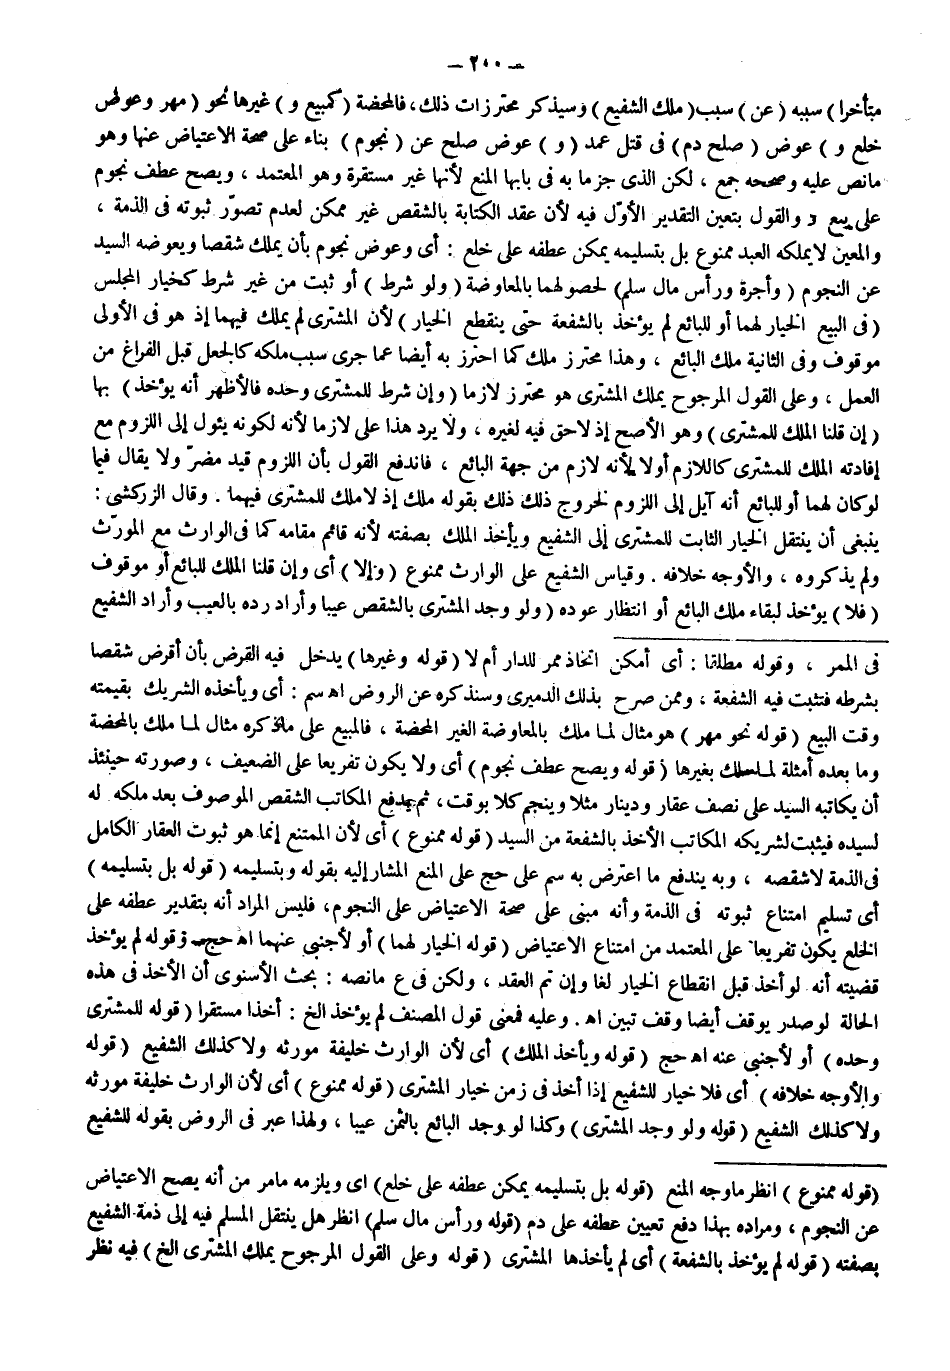 — ٢٠٠ —
متأخرا) سببه (عن) سبب (ملك الشفيع) وسيذكر محترزات ذلك، فالمحضة (كمبيع و) غيرها نحو (مهر وعوض
خلع و) عوض (صلح دم) فى قتل عمد (و) عوض صلح عن (نجوم) بناء على صحة الاعتياض عنها وهو
مانص عليه وصححه جمع، لكن الذى جزما به فى بابها المنع لأنها غير مستقرة وهو المعتمد، ويصح عطف نجوم
على بيع و والقول بتعين التقدير الأوّل فيه لأن عقد الكتابة بالشقص غير ممكن لعدم تصوّر ثبوته فى الذمة،
والمعين لايملكه العبد ممنوع بل بتسليمه يمكن عطفه على خلع: أى وعوض نجوم بأن يملك شقصا ويعوضه السيد
عن النجوم (وأجرة ورأس مال سلم) لحصولهما بالمعاوضة (ولو شرط) أو ثبت من غير شرط كخيار المجلس
(فى البيع الخيار لهما أو للبائع لم يؤخذ بالشفعة حتى ينقطع الخيار) لأن المشترى لم يملك فيهما إذ هو فى الأولى
موقوف وفى الثانية ملك البائع، وهذا محترز ملك كما احترز به أيضا عما جرى سبب ملكه كالجعل قبل الفراغ من
العمل، وعلى القول المرجوح يملك المشترى هو محترز لازما (وإن شرط للمشترى وحده فالأظهر أنه يؤخذ) بها
(إن قلنا الملك للمشترى) وهو الأصح إذ لاحق فيه لغيره، ولا يرد هذا على لازما لأنه لكونه يئول إلى اللزوم مع
إفادته الملك للمشترى كاللازم أولا لأنه لازم من جهة البائع، فاندفع القول بأن اللزوم قيد مضرّ ولا يقال فيما
لوكان لهما أو للبائع أنه آيل إلى اللزوم لخروج ذلك ذلك بقوله ملك إذ لاملك للمشترى فيهما. وقال الزركشى:
ينبغى أن ينتقل الخيار الثابت للمشترى إلى الشفيع ويأخذ الملك بصفته لأنه قائم مقامه كما فى الوارث مع المورّث
ولم يذكروه، والأوجه خلافه. وقياس الشفيع على الوارث ممنوع (وإلا) أى وإن قلنا الملك للبائع أو موقوف
(فلا) يؤخذ لبقاء ملك البائع أو انتظار عوده (ولو وجد المشترى بالشقص عيبا وأراد رده بالعيب وأراد الشفيع
فى الممر، وقوله مطلقا: أى أمكن اتخاذ ممر للدار أم لا (قوله وغيرها) يدخل فيه القرض بأن أقرض شقصا
بشرطه فتثبت فيه الشفعة، وممن صرح بذلك الدميرى وسنذكره عن الروض اه سم: أى ويأخذه الشريك بقيمته
وقت البيع (قوله نحو مهر) هو مثال لما ملك بالمعاوضة الغير المحضة، فالمبيع على ماذكره مثال لما ملك بالمحضة
وما بعده أمثلة لما ملك بغيرها (قوله ويصح عطف نجوم) أى ولا يكون تفريعا على الضعيف، وصورته حينئذ
أن يكاتبه السيد على نصف عقار ودينار مثلا وينجم كلا بوقت، ثم يدفع المكاتب الشقص الموصوف بعد ملكه له
لسيده فيثبت لشريكه المكاتب الأخذ بالشفعة من السيد (قوله ممنوع) أى لأن الممتنع إنما هو ثبوت العقار الكامل
فى الذمة لاشقصه، وبه يندفع ما اعترض به سم على حج على المنع المشار إليه بقوله وبتسليمه (قوله بل بتسليمه)
أى تسليم امتناع ثبوته فى الذمة وأنه مبنى على صحة الاعتياض على النجوم، فليس المراد أنه بتقدير عطفه على
الخلع يكون تفريعا على المعتمد من امتناع الاعتياض (قوله الخيار لهما) أو لأجنبى عنهما اه حج وقوله لم يؤخذ
قضيته أنه لو أخذ قبل انقطاع الخيار لغا وإن تم العقد، ولكن فى ع مانصه: بحث الأسنوى أن الأخذ فى هذه
الحالة لو صدر يوقف أيضا وقف تبين اه. وعليه فمعنى قول المصنف لم يؤخذ الخ: أخذا مستقرا (قوله للمشترى
وحده) أو لأجنبى عنه اه حج (قوله ويأخذ الملك) أى لأن الوارث خليفة مورثه ولا كذلك الشفيع (قوله
والأوجه خلافه) أى فلا خيار للشفيع إذا أخذ فى زمن خيار المشترى (قوله ممنوع) أى لأن الوارث خليفة مورثه
ولا كذلك الشفيع (قوله ولو وجد المشترى) وكذا لو وجد البائع بالثمن عيبا، ولهذا عبر فى الروض بقوله للشفيع
(قوله ممنوع) انظر ماوجه المنع (قوله بل بتسليمه يمكن عطفه على خلع) اى ويلزمه مامر من أنه يصح الاعتياض
عن النجوم، ومراده بهذا دفع تعيين عطفه على دم (قوله ورأس مال سلم) انظر هل ينتقل المسلم فيه إلى ذمة الشفيع
بصفته (قوله لم يؤخذ بالشفعة) أى لم يأخذها المشترى (قوله وعلى القول المرجوح يملك المشترى الخ) فيه نظر